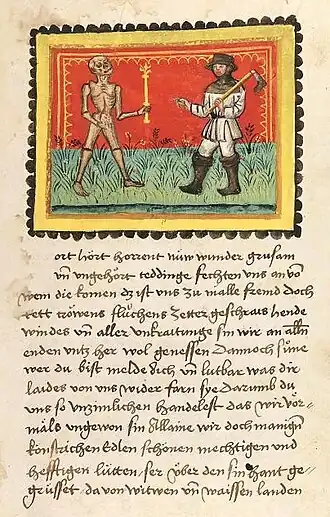 ort hört horrent nüw wunder grusam
vñ vngehört teddinge fechten vns an von
wem die komen dz ist vns zu malle fremd doch
tröwens flüchens Zetter geschrais hende
windes vñ aller vnkraitunge sin wir an alln
enden vntz her wol genessen Dannoch sune
wer du bist melde dich vñ lutbar was dir
laides von vns wider farn sye Darumb du
vns so vnzimlichen handelest das wir vor=
mäls vngewon sin Allaine wir doch manign
künstrichen Edlen schönen mechtigen vnd
hefftigen lütten ser über den sin hant ge=
grüsset da von witwen vñ waissen landen